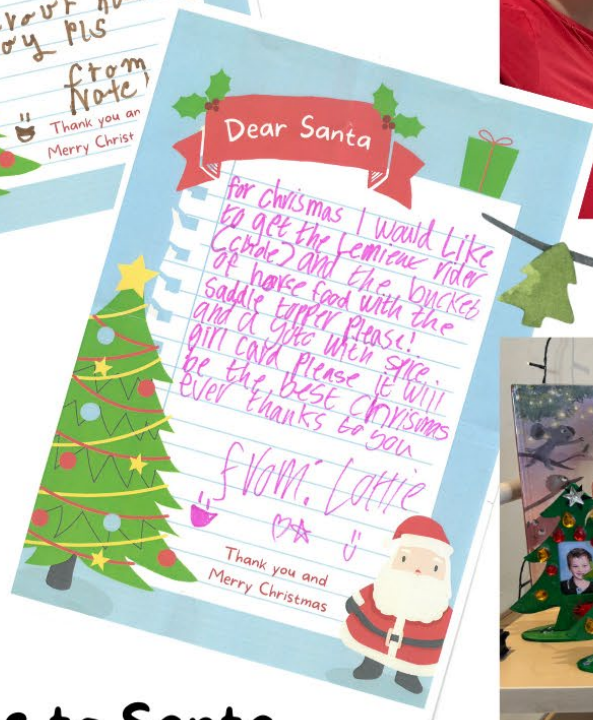 oy pls
from
Nate
Thank you an
Merry Christ
Dear Santa
for chrismas I would Like
to get the Lemieux rider
and the bucket
of horse food with the
saddle topper please!
and a with
girl card please it will
be the best Chrismas
ever thanks to you
from: Lottie
Thank you and
Merry Christmas
to Santa